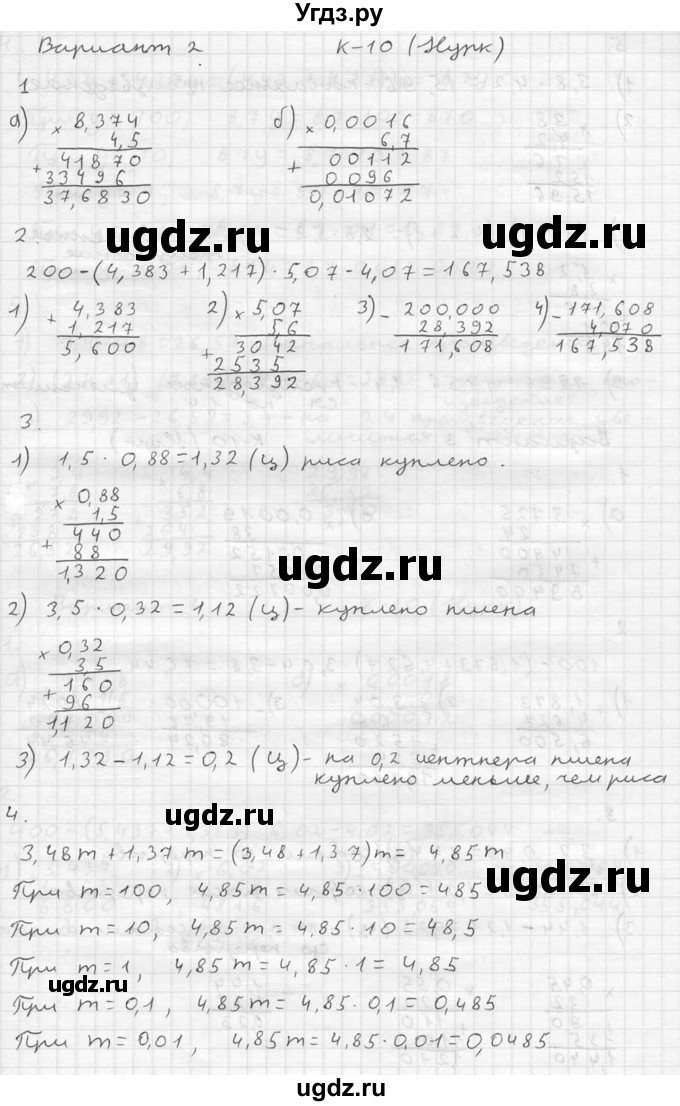 Угдз.ру
Вариант 2. К-10 (Нурк)
1
а) × 8,374 б) × 0,0016
4,5 6,7
+ 41870 + 00112
33496 0096
37,6830 0,01072
ugdz.ru ugdz.ru
2.
200-(4,383+1,217)·5,07-4,07=167,538
1) + 4,383 2) × 5,07 3) - 200,000 4) - 171,608
1,217 5,6 28,392 4,070
5,600 + 3042 171,608 167,538
2535
28,392
3.
1) 1,5·0,88=1,32 (ц) риса куплено.
× 0,88
1,5
+ 440
88
1,320
ugdz.ru ugdz.ru
2) 3,5·0,32=1,12 (ц)- куплено пшена
× 0,32
3,5
+ 160
96
1,120
ugdz.ru
3) 1,32-1,12=0,2 (ц)- на 0,2 центнера пшена
куплено меньше, чем риса
4.
ugdz.ru
3,48m+1,37m=(3,48+1,37)m= 4,85m
ugdz.ru
При m=100, 4,85m=4,85·100=485
При m=10, 4,85m=4,85·10=48,5
При m=1, 4,85m=4,85·1=4,85
ugdz.ru
При m=0,1, 4,85m=4,85·0,1=0,485
При m=0,01, 4,85m=4,85·0,01=0,0485.
ugdz.ru
ugdz.ru